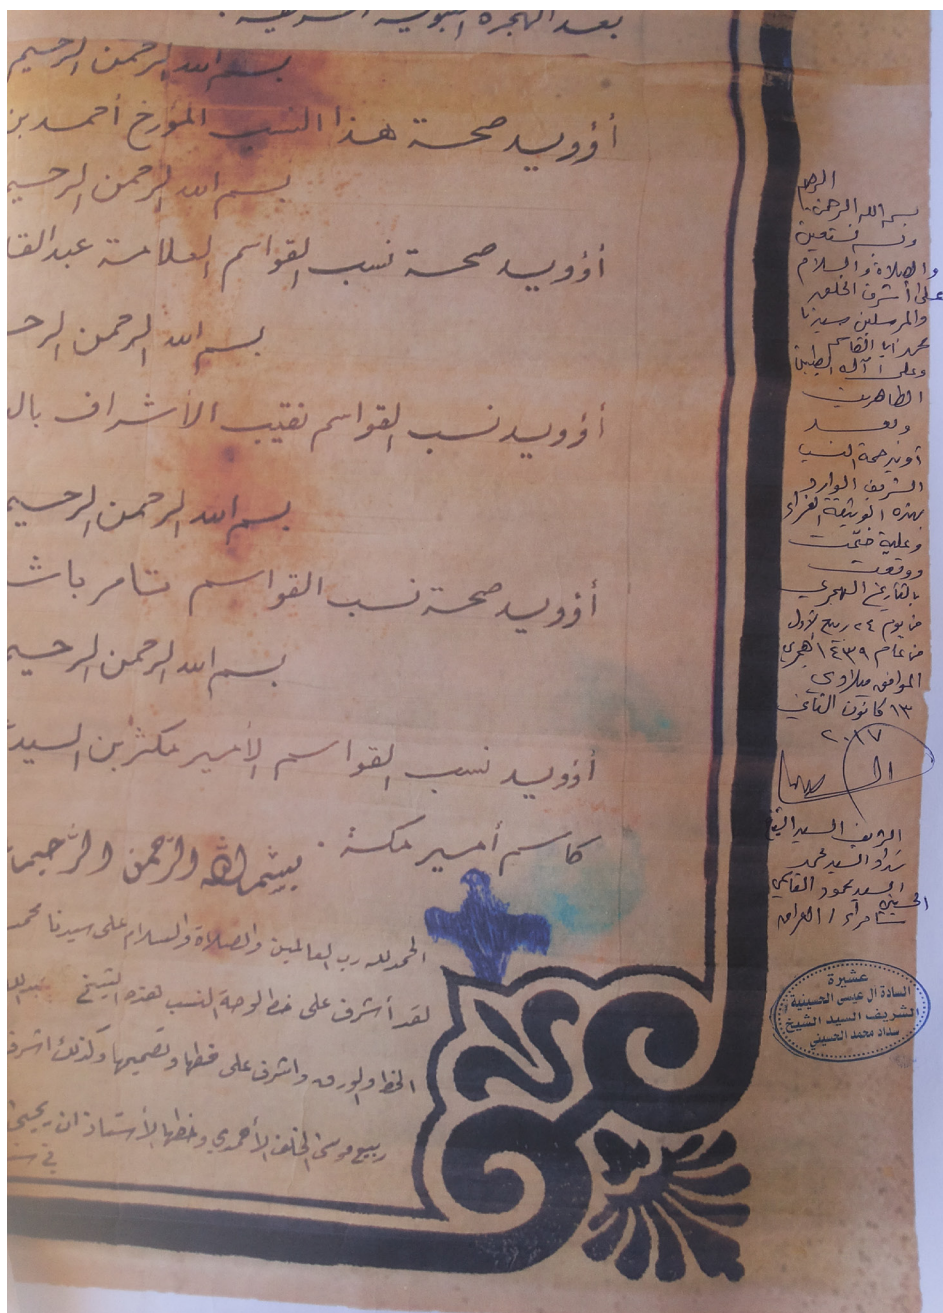 بعد الهجرة النبوية الشريفة.
بسم الله الرحمن الرحيم
أؤويد صحة هذا النسب المؤرخ أحمد بن
بسم الله الرحمن الرحيم
أؤويد صحة نسب القواسم العلامة عبدالقا
بسم الله الرحمن الرحـ
أؤويد نسب القواسم نقيب الأشراف بال
بسم الله الرحمن الرحيم
أؤويد صحة نسب القواسم تامر باشـ
بسم الله الرحمن الرحيم
أؤويد نسب القواسم الأمير مكثر بن السيد
كاسم أمير مكة.
بسم الله الرحمن الرحيم
الحمد لله رب العالمين والصلاة والسلام على سيدنا محمد
لقد أشرف على خط الوحة النسب هذه الشيخ عبدالله
الخط والورق واشرف على خطها وتصميمها وكذلك اشرف
ربيع موسى الخلف الأحمدي وخطها الأستاذ ان يحيى
في
بسم الله الرحمن الرحيم
وبه نستعين
والصلاة والسلام
على أشرف الخلق
والمرسلين سيدنا
محمد أبا القاسم
وعلى آله الطيبين
الطاهرين
وبعد
أؤيد صحة النسب
الشريف الوارد
بهذه الوثيقة الغراء
وعليه ختمت
ووقعت
بالتاريخ الهجري
من يوم ٢٤ ربيع الأول
من عام ١٤٣٩ هجري
الموافق ميلادي
١٣ كانون الثاني
٢٠١٧
الشريف السيد الشيخ
سداد السيد محمد
السيد محمود القاسمي
الحسيني
سامراء / العراق
عشيرة
السادة ال عيسى الحسينية
الشريف السيد الشيخ
سداد محمد الحسيني